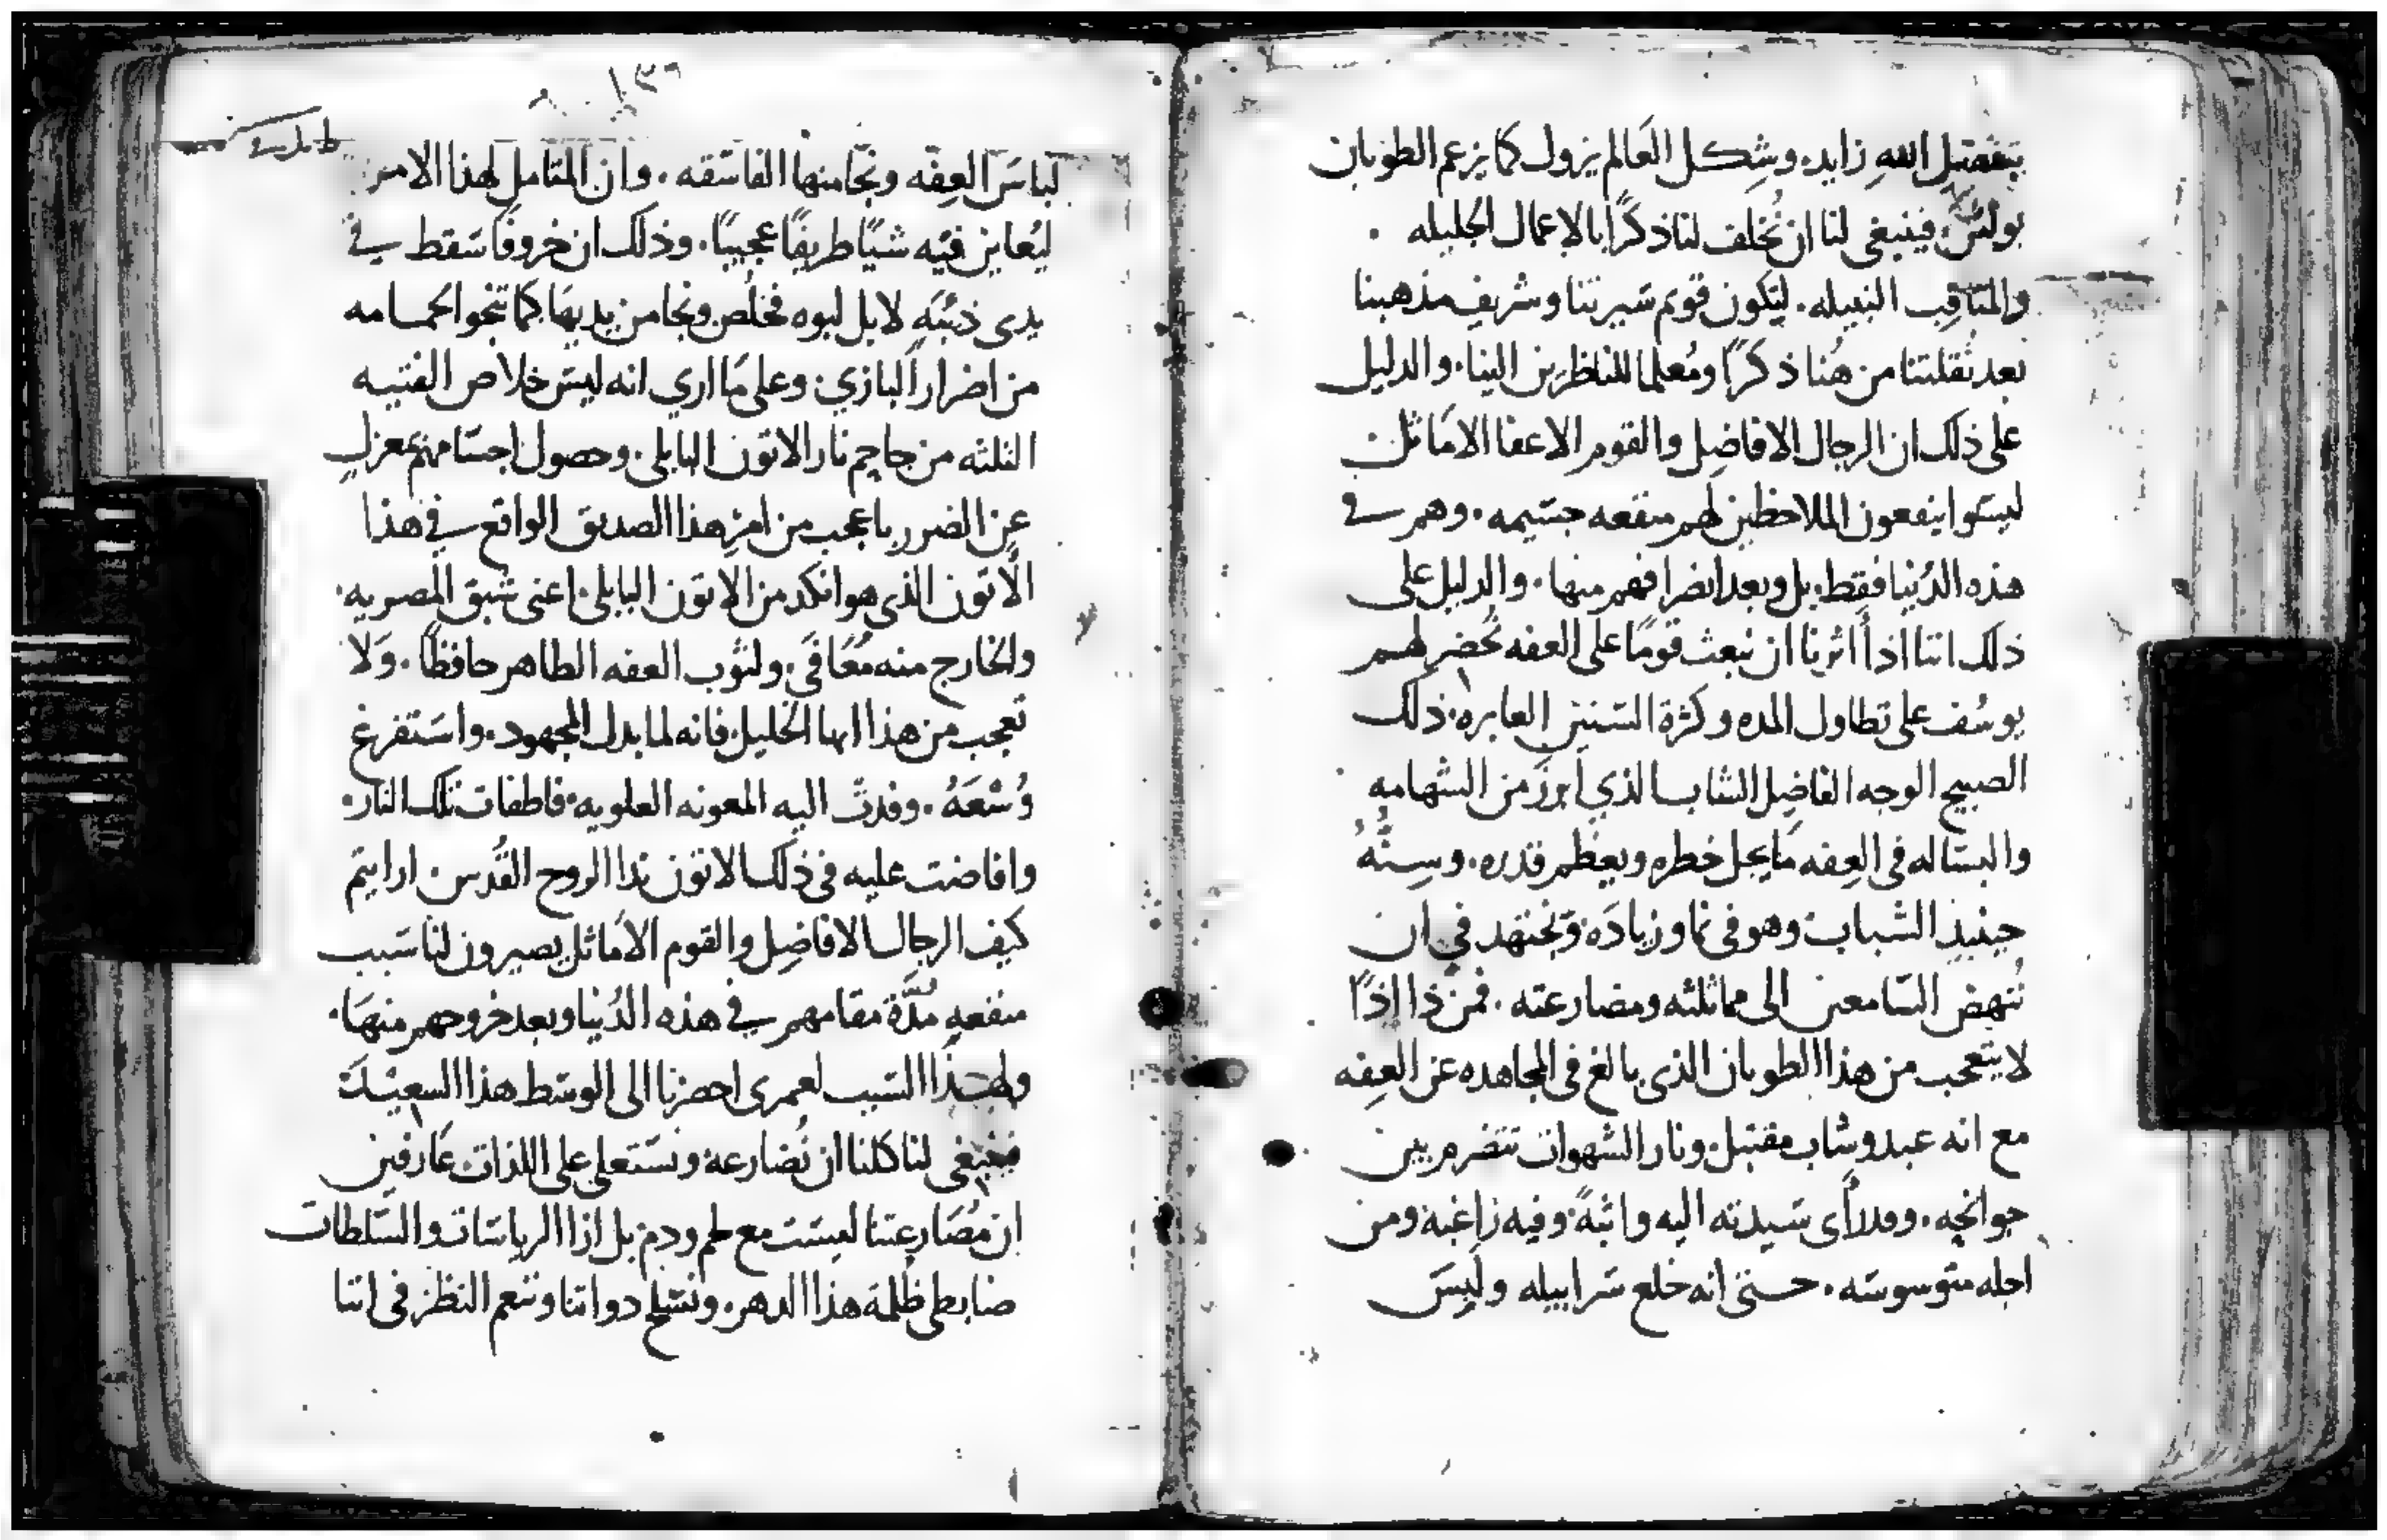 بتفضل الله زايد. وشكل العالم يزول كما يزعم الطوبان
بولس. فينبغي لنا ان نُخلف لنا ذكرًا بالاعمال الجليله
والمناقب النبيله. ليكون قوم سيرتنا وشريف مذهبنا
بعد نُقلتنا من هُنا ذكرًا ومُعلما للناظرين الينا. والدليل
على ذلك ان الرجال الافاضِل والقوم الاعفا الاماثل
ليسوا ينفعون الملاحظين لهم منفعه جسيمه. وهم في
هذه الدُنيا فقط. بل وبعد انضرافهم منها. والدليل على
ذلك اننا اذا اثرنا ان نبعث قومًا على العفه نُحضر لهم
يوسُف على تطاول المده وكثرة السنين العابره. ذلك
الصبيح الوجه الفاضِل الشاب الذي ابرزَ من الشهامه
والبساله في العِفه مَا يجل خطره ويعظم قدره. وسِنُّهُ
حينيذٍ الشباب وهو في نما وزيادَه ونجتهد في ان
نُنهض السامعين الى مماثلته ومضارعته. فمن ذا اذًا
لا يتعجب من هذا الطوبان الذي بالغ في المجاهده عن العِفه
مع انه عبد وشاب مقتبل. ونار الشهوات تتضرم بين
جوانحِه. وورأى سيدته اليه واثبةً. وفيه راغبة ومن
اجله متوسوسه. حتى انه خلع سرابيله ولبِسَ
١٣٦
لباسَ العِفّه ونجا منها الفاسقه. وان المتامل لهذا الامر
ليُعاين فيه شيًا طريفًا عجيبًا. وذلك ان خروفًا سَقط في
يدي ذئبَه لا بل لبوه فخلُص ونجا من يديهَا كما تنجوا لحمامه
من اضرار البازي. وعلى مَا اري انه ليس خلاص الفتيه
الثلثه من جاحِم نار الاتون البابلي. وحصول اجسامهم بمعزلٍ
عن الضرر باعجب من امرِ هذا الصديق الواقع في هذا
الاتون الذي هو انكد من الاتون البابلي. اعنى شبق المصريه.
والخارج منه مُعَافَى. ولثوب العفه الطاهر حافظًا. وَلا
تعجب من هذا ايها الخليل. فانه لما بدل المجهود. واستفرغ
وُسْعَهُ. وفدتْ اليه المعونه العلويه. فاطفات تلك النار.
وافاضت عليه في ذلك الاتون ندا الروح القُدس. ارايتم
كيف الرجال الافاضِل والقوم الاماثل يصيرون لنا سَبب
منفعهٍ مُدَّة مقامهم في هذه الدُنيا وبعد خروجهم منهَا.
ولهذا السَبب لعمرى احضرنا الى الوسَط هذا السعيد
فينبغي لنا كلنا ان نُضارعهُ ونسْتعلى على اللذات عَارفين
ان مُصَارعتنا ليسَت مع لحم ودمٍ بل ازا الرياسَات والسَلطات
ضابطي ظُلمة هذا الدهر. ونسَلح دواتنا وننعم النظر في اننا